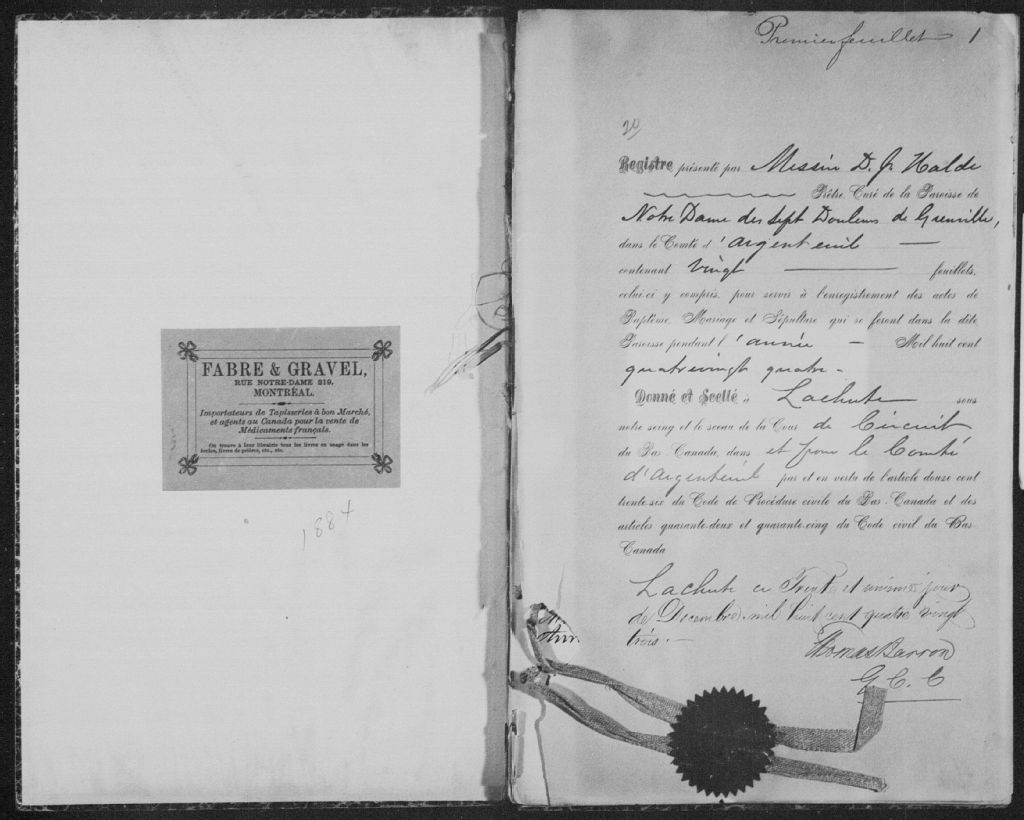 FABRE & GRAVEL,
RUE NOTRE-DAME 219,
MONTRÉAL.
Importateurs de Tapisseries à bon Marché,
et agents au Canada pour la vente de
Médicaments français.
On trouve à leur librairie tous les livres en usage dans les
écoles, livres de prières, etc., etc.
1884
Premier feuillet 1
20
Registre présenté par Messire D. J. Halde
Prêtre, Curé de la Paroisse de
Notre Dame des sept Douleurs de Grenville,
dans le Comté d'Argenteuil
contenant vingt feuillets,
celui-ci y compris, pour servir à l'enregistrement des actes de
Baptême, Mariage et Sépulture qui se feront dans la dite
Paroisse pendant l'année - Mil huit cent
quatrevingt quatre -
Donné et Scellé à Lachute sous
notre seing et le sceau de la Cour de Circuit
du Bas Canada, dans et pour le Comté
d'Argenteuil par et en vertu de l'article douze cent
trente-six du Code de Procédure civile du Bas-Canada et des
articles quarante-deux et quarante-cinq du Code civil du Bas-
Canada
Lachute ce Trente et unième jour
de Décembre mil huit cent quatre vingt
trois. -
Thomas Barron
G. C. C